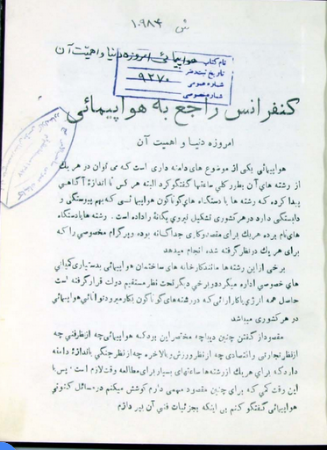 ش ۱۰۹۸۴
هواپیمائی امروزه دنیا و اهمیت آن
نام کتاب
تاریخ ثبت دفتر
شماره عمومی ۹۲۷۰
شماره خصوصی
کنفرانس راجع به هواپیمائی
امروزه دنیا و اهمیت آن
هواپیمائی یکی از موضوع های دامنه داری است که می توان در هر یک
از رشته های آن بطور کلی ساعتها گفتگو کرد البته هر کس تا اندازهٔ آگاهی
پیدا کرده که رشته ها با دستگاه های گوناگون هواپیمائی که بهم پیوستگی و
وابستگی دارد در هر کشوری تشکیل نیروی یگانهٔ را داده است. رشته ها یا دستگاه
های نام برده هر یک برای مقصود و کاری جداگانه بوده و پروگرام مخصوصی را که
برای هر یک در نظر گرفته شده انجام میدهد
برخی از این رشته ها مانند کارخانه های ساختمان هواپیمائی بدستیاری کمپانی
های خصوصی اداره میگردد و برخی دیگر تحت نظر مستقیم دولت قرار گرفته است
حاصل همه انرژی یا کارائی که در رشته های گوناگون بکار میرود توانائی هوا پیمائی
در هر کشوری میباشد
مقصود از گفتن چنین دیباچه مختصر این بود که هواپیمائی چه از نظر فنی چه
از نظر تجارتی و اقتصادی چه از نظر ورزش و بالاخره چه از نظر جنگی باندازهٔ دامنه
دار است که برای هر یک از رشته ها سالهای بسیار برای مطالعه وقت لازم است پس با
این وقت کمی که برای چنین مقصود مهمی دارم کوشش میکنم در مسائل کنونی
هواپیمائی گفتگو کنم بی اینکه بجزئیات فنی آن بپردازم